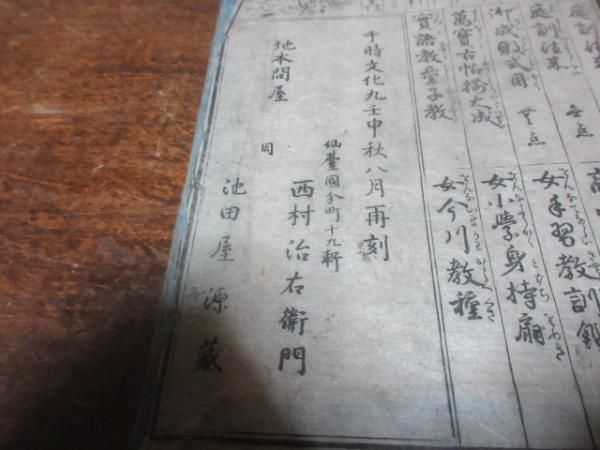 庭訓往来
無点
庭訓往来
無点
御成敗式目
萬寶古状揃大成
實語教童子教
女手習教訓
女小學身持扇
女今川教種
于時文化九壬申秋八月再刻
地本問屋
仙臺國分町十九軒
西村治右衛門
同
池田屋源蔵